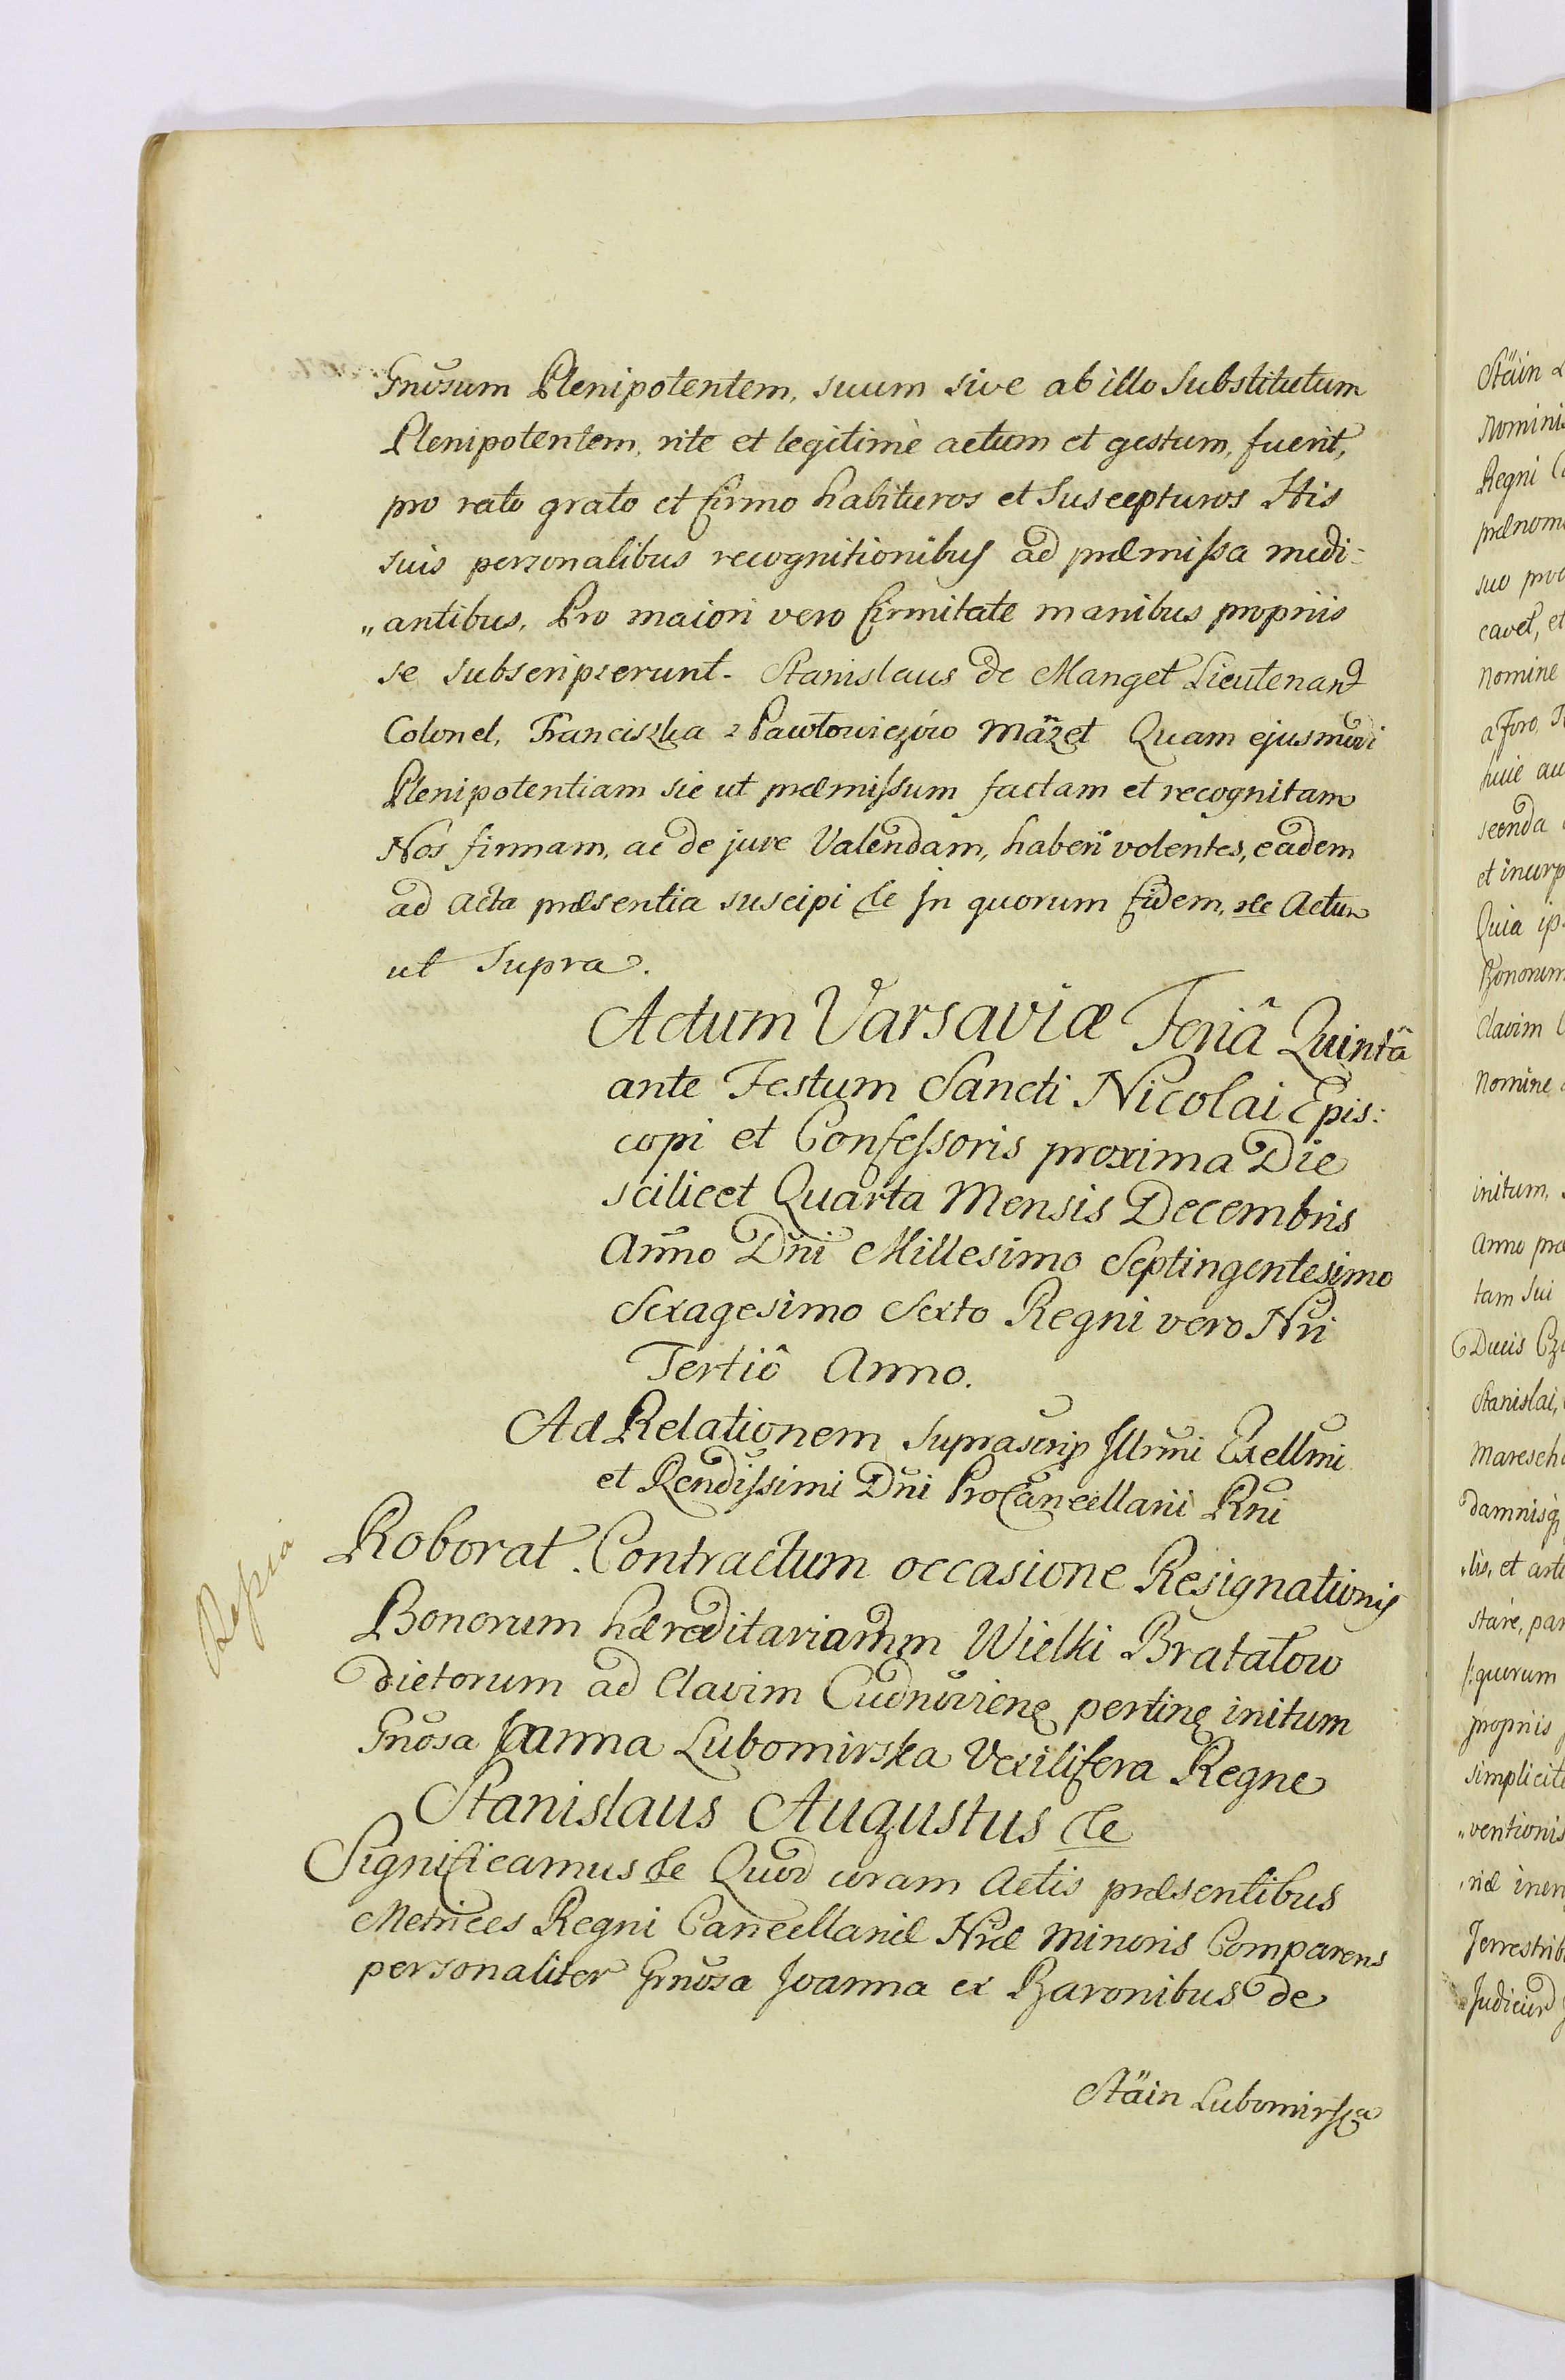 Gnosum Plenipotentem, suum sive ab illo Substitutum
Plenipotentem, rite et legitime actum et gestum, fuerit,
pro rato grato et firmo habituros et Suscepturos His
suis personalibus recognitionibus ad præmissa medi-
„antibus. Pro maiori vero firmitate manibus propriis
se subscripserunt. Stanislaus de Manget Lieutenant
Colonel, Franciszka z Pawłowiczów Mãzet Quam ejusmodi
Plenipotentiam sic ut præmissum factam et recognitam
Nos firmam, ac de jure Valendam, haberi volentes, eadem
ad acta præsentia suscipi &c In quorum fidem, &c Actum
ut Supra.
Actum Varsaviæ Feriâ Quintâ
ante Festum Sancti Nicolai Epis:
copi et Confessoris proxima Die
scilicet Quarta Mensis Decembris
Anno Dni Millesimo Septingentesimo
Sexagesimo Sexto Regni vero Nri
Tertiô Anno.
Ad Relationem suprascrip Illrmi Exellmi
et Rendissimi Dni ProCancellarii Rni
Repsa
Roborat. Contractum occasione Resignationis
Bonorum hæreditariarum Wielki Bratałow
dictorum ad Clavim Cudnoviens pertinẽ initum
Gnosa Joanna Lubomirska Vexilifera Regne
Stanislaus Augustus &c
Significamus &c Quod coram Actis præsentibus
Metrices Regni Cancellariæ Nræ Minoris Comparens
personaliter Gnosa Joanna ex Baronibus de
Stäin Lubomirska
Stäin
nominis
Regni
prænom
suo pro
cavet, et
nomine
a Foro,
huic au
scenda
et incurp
Quia ip
Bonorum
Clavim
Nomine
initum,
Anno præ
tam sui
Ducis Cza
Stanislai,
Maresch
damnisq
lis, et arti
stare, par
quorum
propriis
simplicite
„ventionis
riæ inen
Terrestrib
Judicior